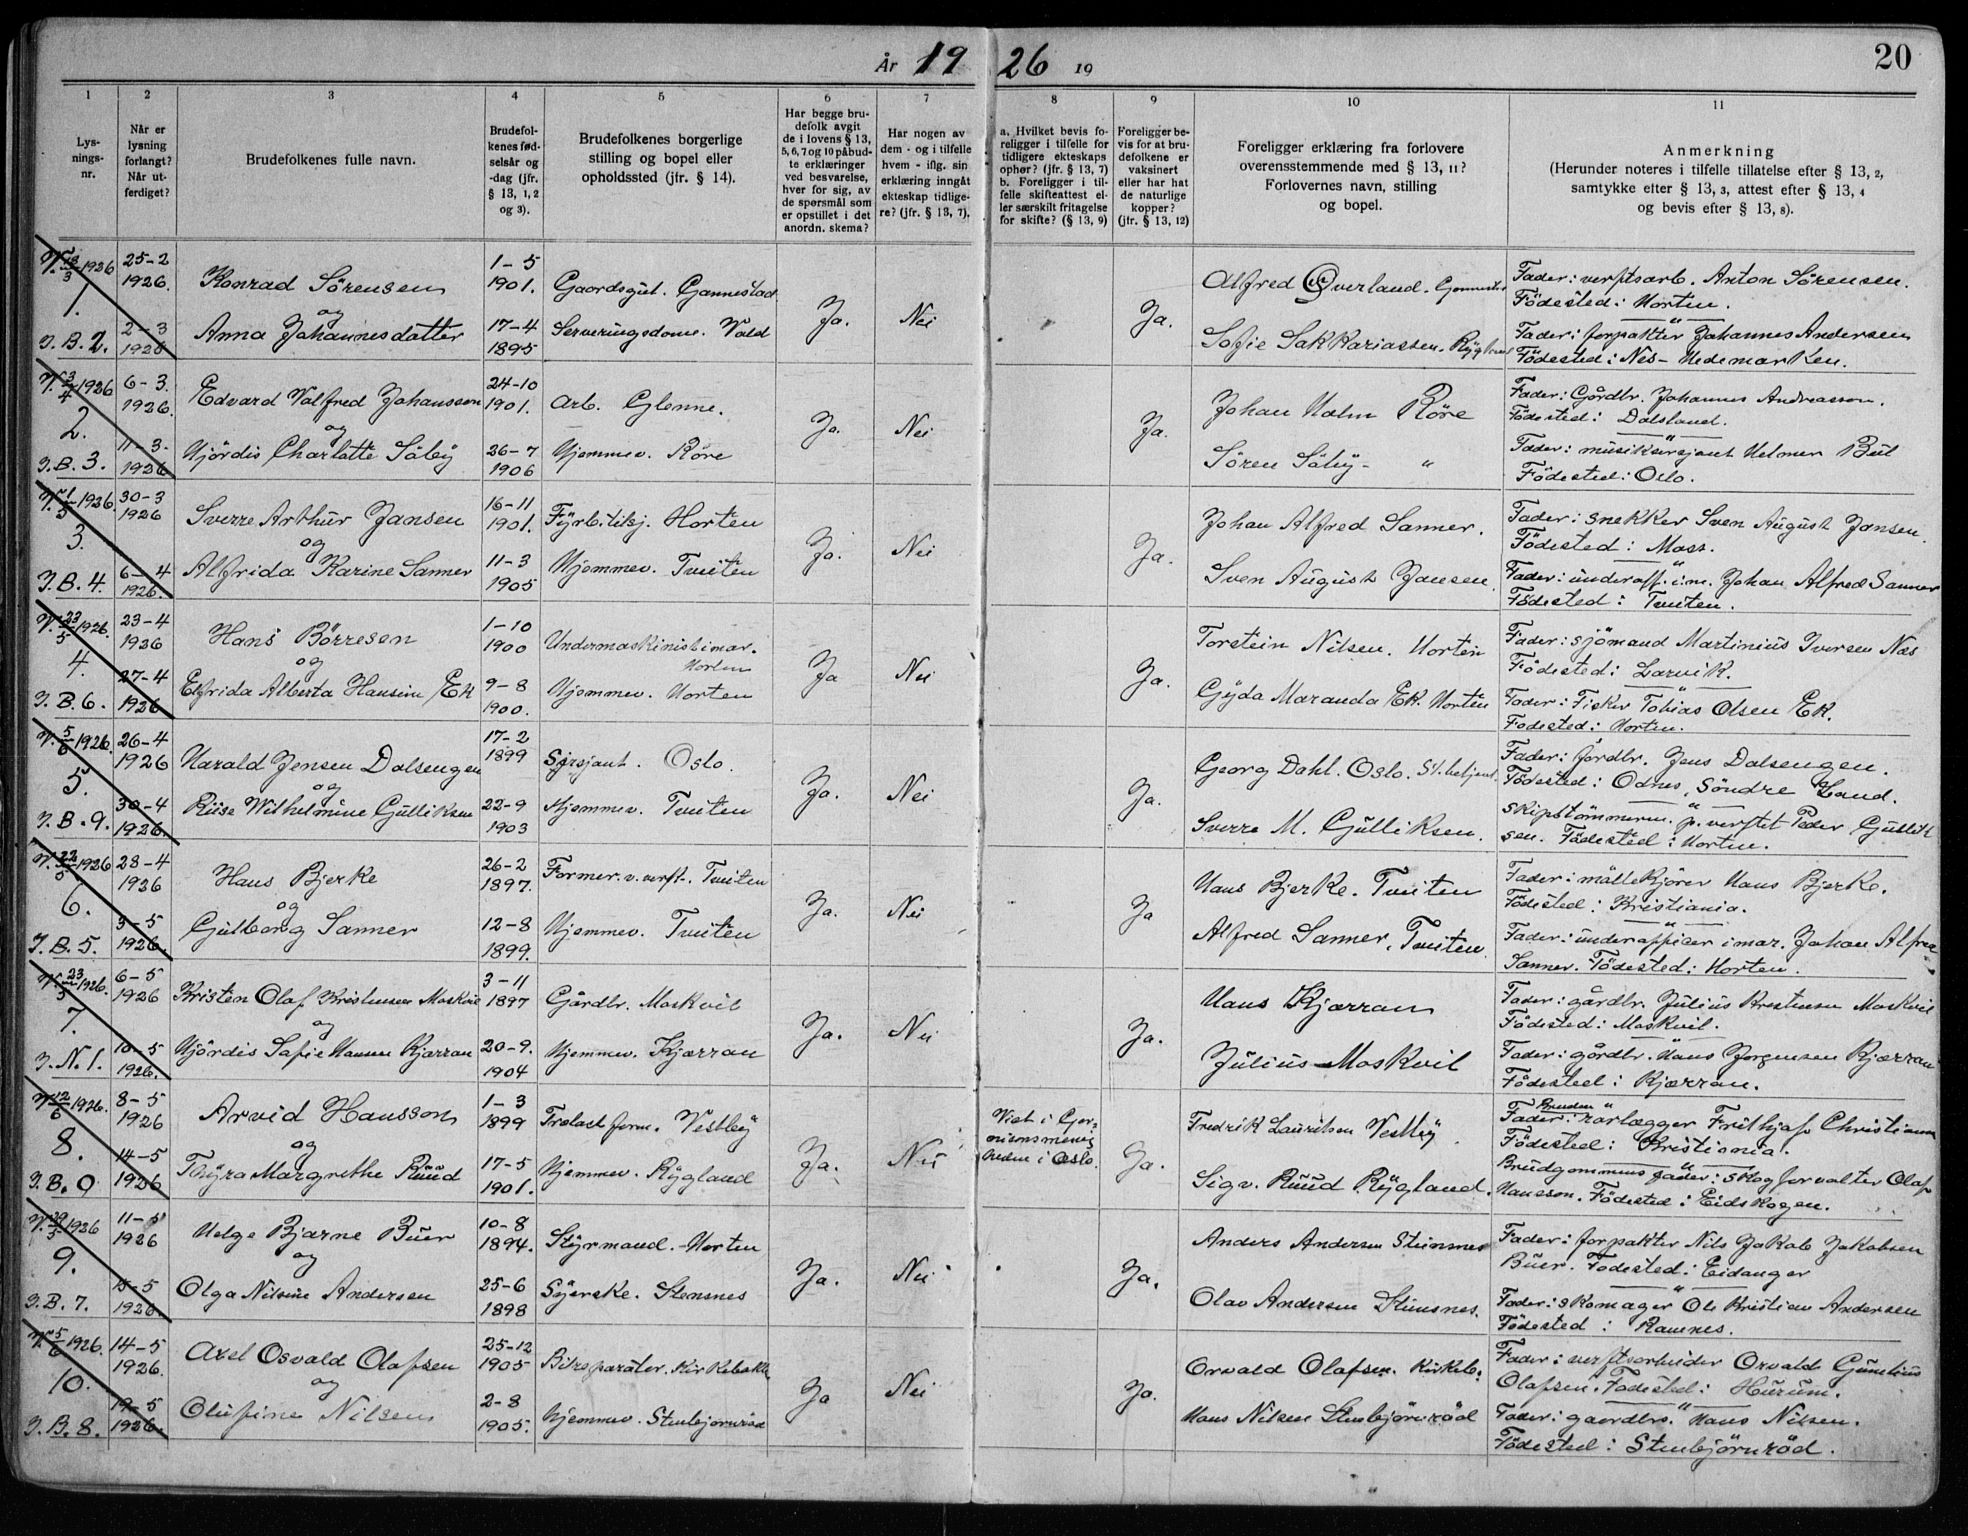 År 19 26 19
20
1
2
3
4
5
6
7
8
9
10
11
Lys-
nings-
nr.
Når er
lysning
forlangt?
Når ut-
ferdiget?
Brudefolkenes fulle navn.
Brudefol-
kenes fød-
selsår og
-dag (jfr.
§ 13, 1, 2
og 3).
Brudefolkenes borgerlige
stilling og bopel eller
opholdssted (jfr. § 14).
Har begge bru-
defolk avgit
de i lovens § 13,
5, 6, 7 og 10 påbud-
te erklæringer
ved besvarelse,
hver for sig, av
de spørsmål som
er opstillet i det
anordn. skema?
Har nogen av
dem - og i tilfelle
hvem - iflg. sin
erklæring inngått
ekteskap tidlige-
re? (jfr. § 13, 7).
a. Hvilket bevis fo-
religger i tilfelle for
tidligere ekteskaps
ophør? (jfr. § 13, 7)
b. Foreligger i til-
felle skifteattest el-
ler særskilt fritagelse
for skifte? (§ 13, 9)
Foreligger be-
vis for at bru-
defolkene er
vaksinert
eller har hat
de naturlige
kopper?
(jfr. § 13, 12)
Foreligger erklæring fra forlovere
overensstemmende med § 13, 11?
Forlovernes navn, stilling
og bopel.
Anmerkning
(Herunder noteres i tilfelle tillatelse efter § 13, 2,
samtykke etter § 13, 3, attest efter § 13, 4
og bevis efter § 13, 8).
V. 13/3 1926
1.
J. B. 2.
25-2
1926.
2-3
1926
Konrad Sörensen
og
Anna Johannesdatter
1-5
1901.
17-4
1895
Gaardsgut. Gannestad
Serveringsdame. Vold
Ja.
Nei
Ja.
Alfred Överland.
Sofie Sakkariassen.
Fader: verftsarb. Anton Sörensen.
Födested: Horten.
Fader: forpakter Johannes Andersen
Födested: Nes- Hedemarken.
V. 3/4 1926
2.
J. B. 3.
6-3.
1926.
11-3.
1926
Edvard Valfred Johansson
og
Hjördis Charlotte Säby
24-10
1901.
26-7
1906
Arb. Glenne.
Hjemmev. Röre
Ja.
Nei
Ja.
Johan Holm Röre
Sören Säby - "
Fader: Gårdbr. Johannes Andreasson.
Födested: Dalsland.
Fader: musiksersjant Helmer Bul
Födested: Oslo.
V. 1/5 1926.
3.
J. B. 4.
30-3
1926
6-4
1926
Sverre Arthur Jansen
og
Alfrida Karine Sanner
16-11
1901.
11-3
1905
Fyrbötikj. Horten
Hjemmev. Tveiten
Ja.
Nei
Ja.
Johan Alfred Sanner.
Sven August Jansen
Fader: snekker Sven August Jansen.
Födested: Moss.
Fader: underoff. i m. Johan Alfred Sanner
Födested: Tveiten.
V. 23/5 1926.
4.
J. B. 6.
23-4
1926
27-4
1926
Hans Börresen
og
Elfrida Alberta Hansine Ek
1-10
1900
9-8
1900.
Undermaskinist i mar.
Horten
Hjemmev. Horten
Ja
Nei
Ja.
Torstein Nilsen. Horten
Gyda Maranda Ek. Horten
Fader: sjömand Martinius Iversen Næs
Födested: Larvik.
Fader: Fisker Tobias Olsen Ek.
Födested: Horten.
V. 5/6 1926.
5.
J. B. 9.
26-4
1926
30-4
1926.
Harald Jensen Dalsengen
og
Riise Wilhelmine Gulliksen
17-2
1899
22-9
1903
Sersjant. Oslo.
Hjemmev. Tveiten
Ja.
Nei
Ja.
Georg Dahl. Oslo. St. betjent.
Sverre M. Gulliksen.
Fader: Jordbr. Jens Dalsengen.
Födested: Odnes, Söndre Land.
Skipstömmerm. p. verftet Peder Gullik
sen. Födested: Horten.
V. 22/5 1926
6.
J. B. 5.
28-4
1926
3-5
1926.
Hans Bjerke
og
Gulborg Sanner
26-2
1897.
12-8
1899.
Former. v. verft. Tveiten
Hjemmev. Tveiten
Ja.
Nei
Ja
Hans Bjerke. Tveiten
Alfred Sanner. Tveiten.
Fader: möllekjörer Hans Bjerke.
Födested: Kristiania.
Fader: underofficer i mar. Johan Alfred
Sanner. Födested: Horten.
V. 23/5 1926.
7.
J. N. 1.
6-5
1926
10-5
1926.
Kristen Olaf Kristensen Moskvil
og
Hjördis Sofie Hansen Kjærran
3-11
1897
20-9.
1904
Gårdbr. Moskvil
Hjemmev. Kjærran
Ja.
Nei
Ja.
Hans Kjærran
Julius Moskvil
Fader: gårdbr. Julius Kristensen Moskvil
Födested: Moskvil.
Fader: gårdbr. Hans Jörgensen Kjærran
Födested: Kjærran.
V. 12/6 1926.
8.
J. B. 9
8-5
1926
14-5
1926
Arvid Hansson
og
Thyra Margrethe Ruud
1-3
1899
17-5
1901.
Trelastform. Vestby
Hjemmev. Rygland
Ja.
Nei
Viet i Gar-
nisonsmenig
heden i Oslo.
Ja.
Fredrik Lauritsen Vestby
Sigv. Ruud Rygland.
Brudens
Fader: rørlægger Frithjof Christiansen
Födested: Kristiania.
Brudgommens fader: skogforvalter Olaf
Hansson. Födested: Eidskogen.
V. 29/5 1926
9.
J. B. 7.
11-5
1926
15-5
1926.
Helge Bjarne Buer
og
Olga Nilsine Andersen
10-8
1894.
25-6
1898
Styrmand. Horten
Syerske. Stensnes
Ja.
Nei
Ja.
Anders Andersen Steinsnes
Olav Andersen Steinsnes.
Fader: forpakter Nils Jakob Jakobsen
Buer. Födested: Eidanger
Fader: skomager Ole Kristian Andersen
Födested: Ramnes.
V. 5/6 1926.
10.
J. B. 8.
14-5
1926.
19-5
1926.
Axel Osvald Olafsen
og
Olufine Nilsen
25-12
1905
2-8
1905.
Bilreparatör. Kirkebakken
Hjemmev. Stenbjörnröd
Ja
Nei
Ja.
Osvald Olafsen. Kirkeb.
Hans Nilsen Stenbjörnröd
Fader: verftsarbeider Osvald Gunelius
Olafsen. Födested: Hurum.
Fader: gaardbr. Hans Nilsen.
Födested: Stenbjörnröd.